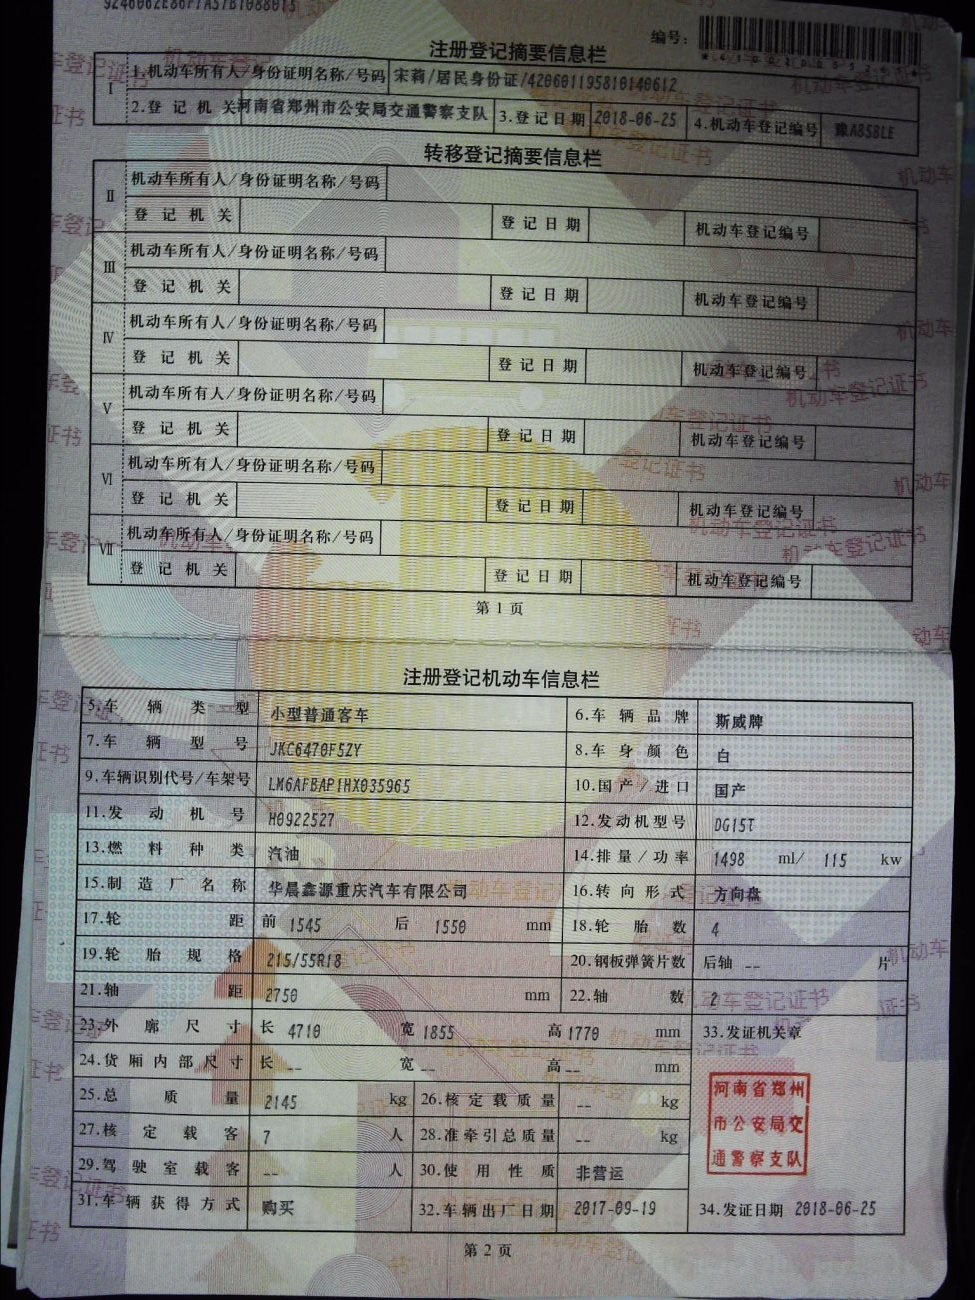 编号：
注册登记摘要信息栏
Ⅰ 1.机动车所有人/身份证明名称/号码 宋莉/居民身份证/420601195810140612
2.登记机关 河南省郑州市公安局交通警察支队 3.登记日期 2018-06-25 4.机动车登记编号 豫A858LE
转移登记摘要信息栏
Ⅱ 机动车所有人/身份证明名称/号码
登记机关 登记日期 机动车登记编号
Ⅲ 机动车所有人/身份证明名称/号码
登记机关 登记日期 机动车登记编号
Ⅳ 机动车所有人/身份证明名称/号码
登记机关 登记日期 机动车登记编号
Ⅴ 机动车所有人/身份证明名称/号码
登记机关 登记日期 机动车登记编号
Ⅵ 机动车所有人/身份证明名称/号码
登记机关 登记日期 机动车登记编号
Ⅶ 机动车所有人/身份证明名称/号码
登记机关 登记日期 机动车登记编号
第1页
注册登记机动车信息栏
5.车辆类型 小型普通客车 6.车辆品牌 斯威牌
7.车辆型号 JKC6470F5ZY 8.车身颜色 白
9.车辆识别代号/车架号 LM6AFBAP1HX035965 10.国产/进口 国产
11.发动机号 H0922527 12.发动机型号 DG15T
13.燃料种类 汽油 14.排量/功率 1498 ml/ 115 kw
15.制造厂名称 华晨鑫源重庆汽车有限公司 16.转向形式 方向盘
17.轮距 前 1545 后 1550 mm 18.轮胎数 4
19.轮胎规格 215/55R18 20.钢板弹簧片数 后轴 -- 片
21.轴距 2750 mm 22.轴数 2
23.外廓尺寸 长 4710 宽 1855 高 1770 mm 33.发证机关章
24.货厢内部尺寸 长 -- 宽 -- 高 -- mm
25.总质量 2145 kg 26.核定载质量 -- kg
27.核定载客 7 人 28.准牵引总质量 -- kg
29.驾驶室载客 -- 人 30.使用性质 非营运
河南省郑州
市公安局交
通警察支队
31.车辆获得方式 购买 32.车辆出厂日期 2017-09-19 34.发证日期 2018-06-25
第2页